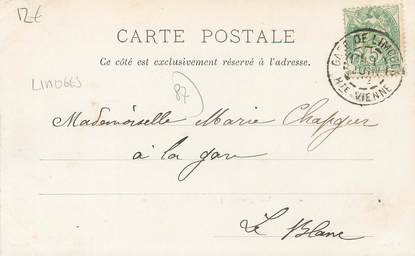 12€
CARTE POSTALE
Ce côté est exclusivement réservé à l'adresse.
LIMOGES
87
GARE DE LIMOGES
HTE VIENNE
Mademoiselle Marie
à la gare
Le Blanc